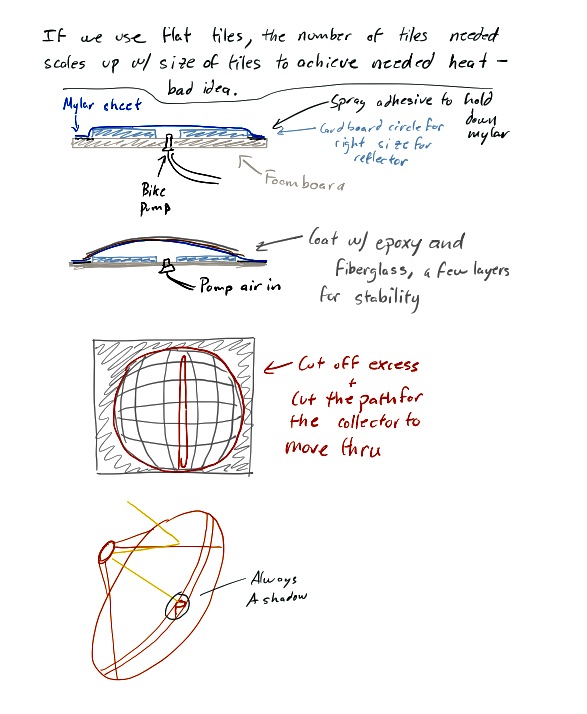 If we use flat tiles, the number of tiles needed
scales up w/ size of tiles to achieve needed heat -
bad idea.
Mylar sheet
Spray adhesive to hold
down
mylar
Cardboard circle for
right size for
reflector
Foamboard
Bike
Pump
Coat w/ epoxy and
Fiberglass, a few layers
for stability
Pump air in
Cut off excess
+
Cut the path for
the collector to
move thru
Always
A shadow